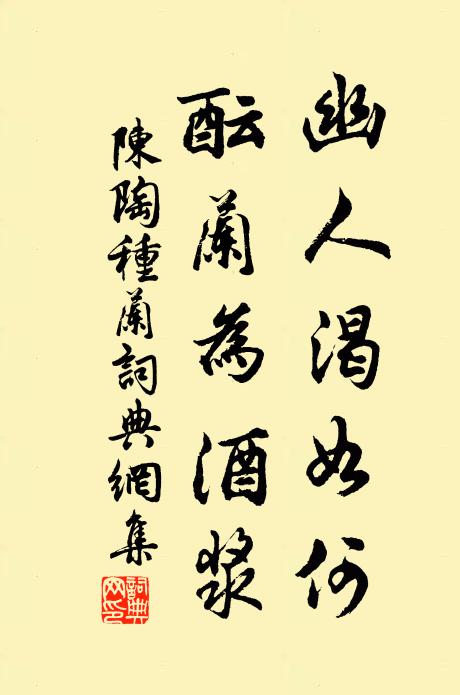 幽人渴如何
酝蘭為酒漿
陳陶種蘭詞典網集
詞典网印